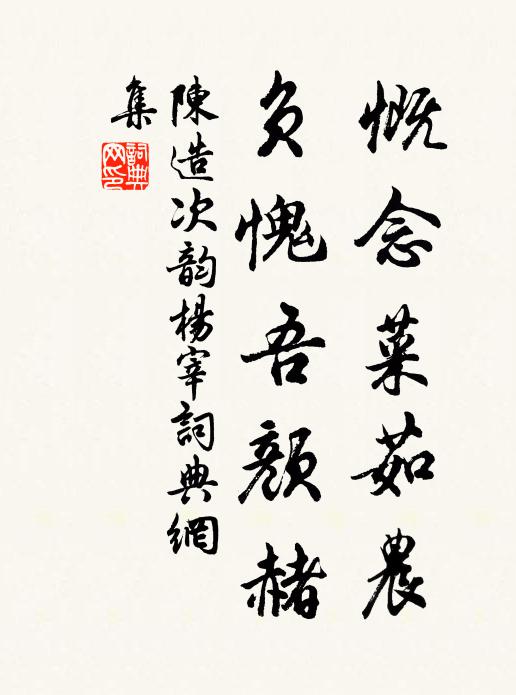 慨念菜茹農
負愧吾顏赭
陳造次韵楊宰詞典網
集
詞典
网印